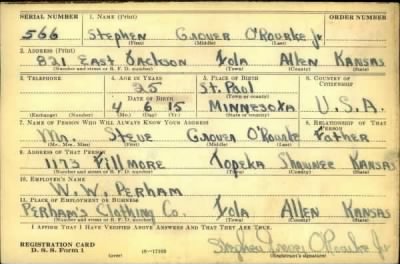 SERIAL NUMBER 1. NAME (Print) ORDER NUMBER
566 Stephen Grover O'Rourke Jr
(First) (Middle) (Last)
2. ADDRESS (Print)
821 East Jackson Iola Allen Kansas
(Number and street or R. F. D. number) (Town) (County) (State)
3. TELEPHONE 4. AGE IN YEARS 5. PLACE OF BIRTH 6. COUNTRY OF CITIZENSHIP
25 St. Paul
DATE OF BIRTH
4 6 15 Minnesota U.S.A.
(Mo.) (Day) (Yr.)
7. NAME OF PERSON WHO WILL ALWAYS KNOW YOUR ADDRESS 8. RELATIONSHIP OF THAT PERSON
Mr. Steve Grover O'Rourke Father
(Mr., Mrs., Miss) (First) (Middle) (Last)
9. ADDRESS OF THAT PERSON
1173 Fillmore Topeka Shawnee Kansas
(Number and street or R. F. D. number) (Town) (County) (State)
10. EMPLOYER'S NAME
W. W. Perham
11. PLACE OF EMPLOYMENT OR BUSINESS
Perham's Clothing Co. Iola Allen Kansas
(Number and street or R. F. D. number) (Town) (County) (State)
I AFFIRM THAT I HAVE VERIFIED ABOVE ANSWERS AND THAT THEY ARE TRUE.
REGISTRATION CARD
D. S. S. Form 1 (over) Stephen Grover O'Rourke Jr
(Registrant's signature)